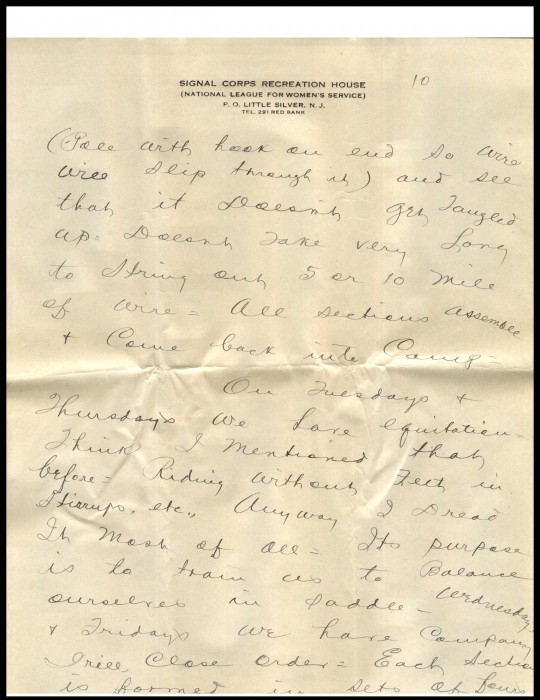 SIGNAL CORPS RECREATION HOUSE
(NATIONAL LEAGUE FOR WOMEN'S SERVICE)
P. O. LITTLE SILVER, N. J.
TEL. 291 RED BANK
10
(Pole with hook on end so wire
will slip through it) and see
that it Doesn't get Tangled
up - Doesn't Take very Long
to String out 5 or 10 mile
of wire - All sections assemble
& Come back into Camp -
On Tuesdays &
Thursdays we have equitation -
Think I Mentioned that
before - Riding without Feet in
Stirrups, etc., Anyway I Dread
It Most of all - Its purpose
is to train us to Balance
ourselves in saddle - Wednesdays
& Fridays we have Company
Drill Close Order - Each Section
is formed in sets of fours